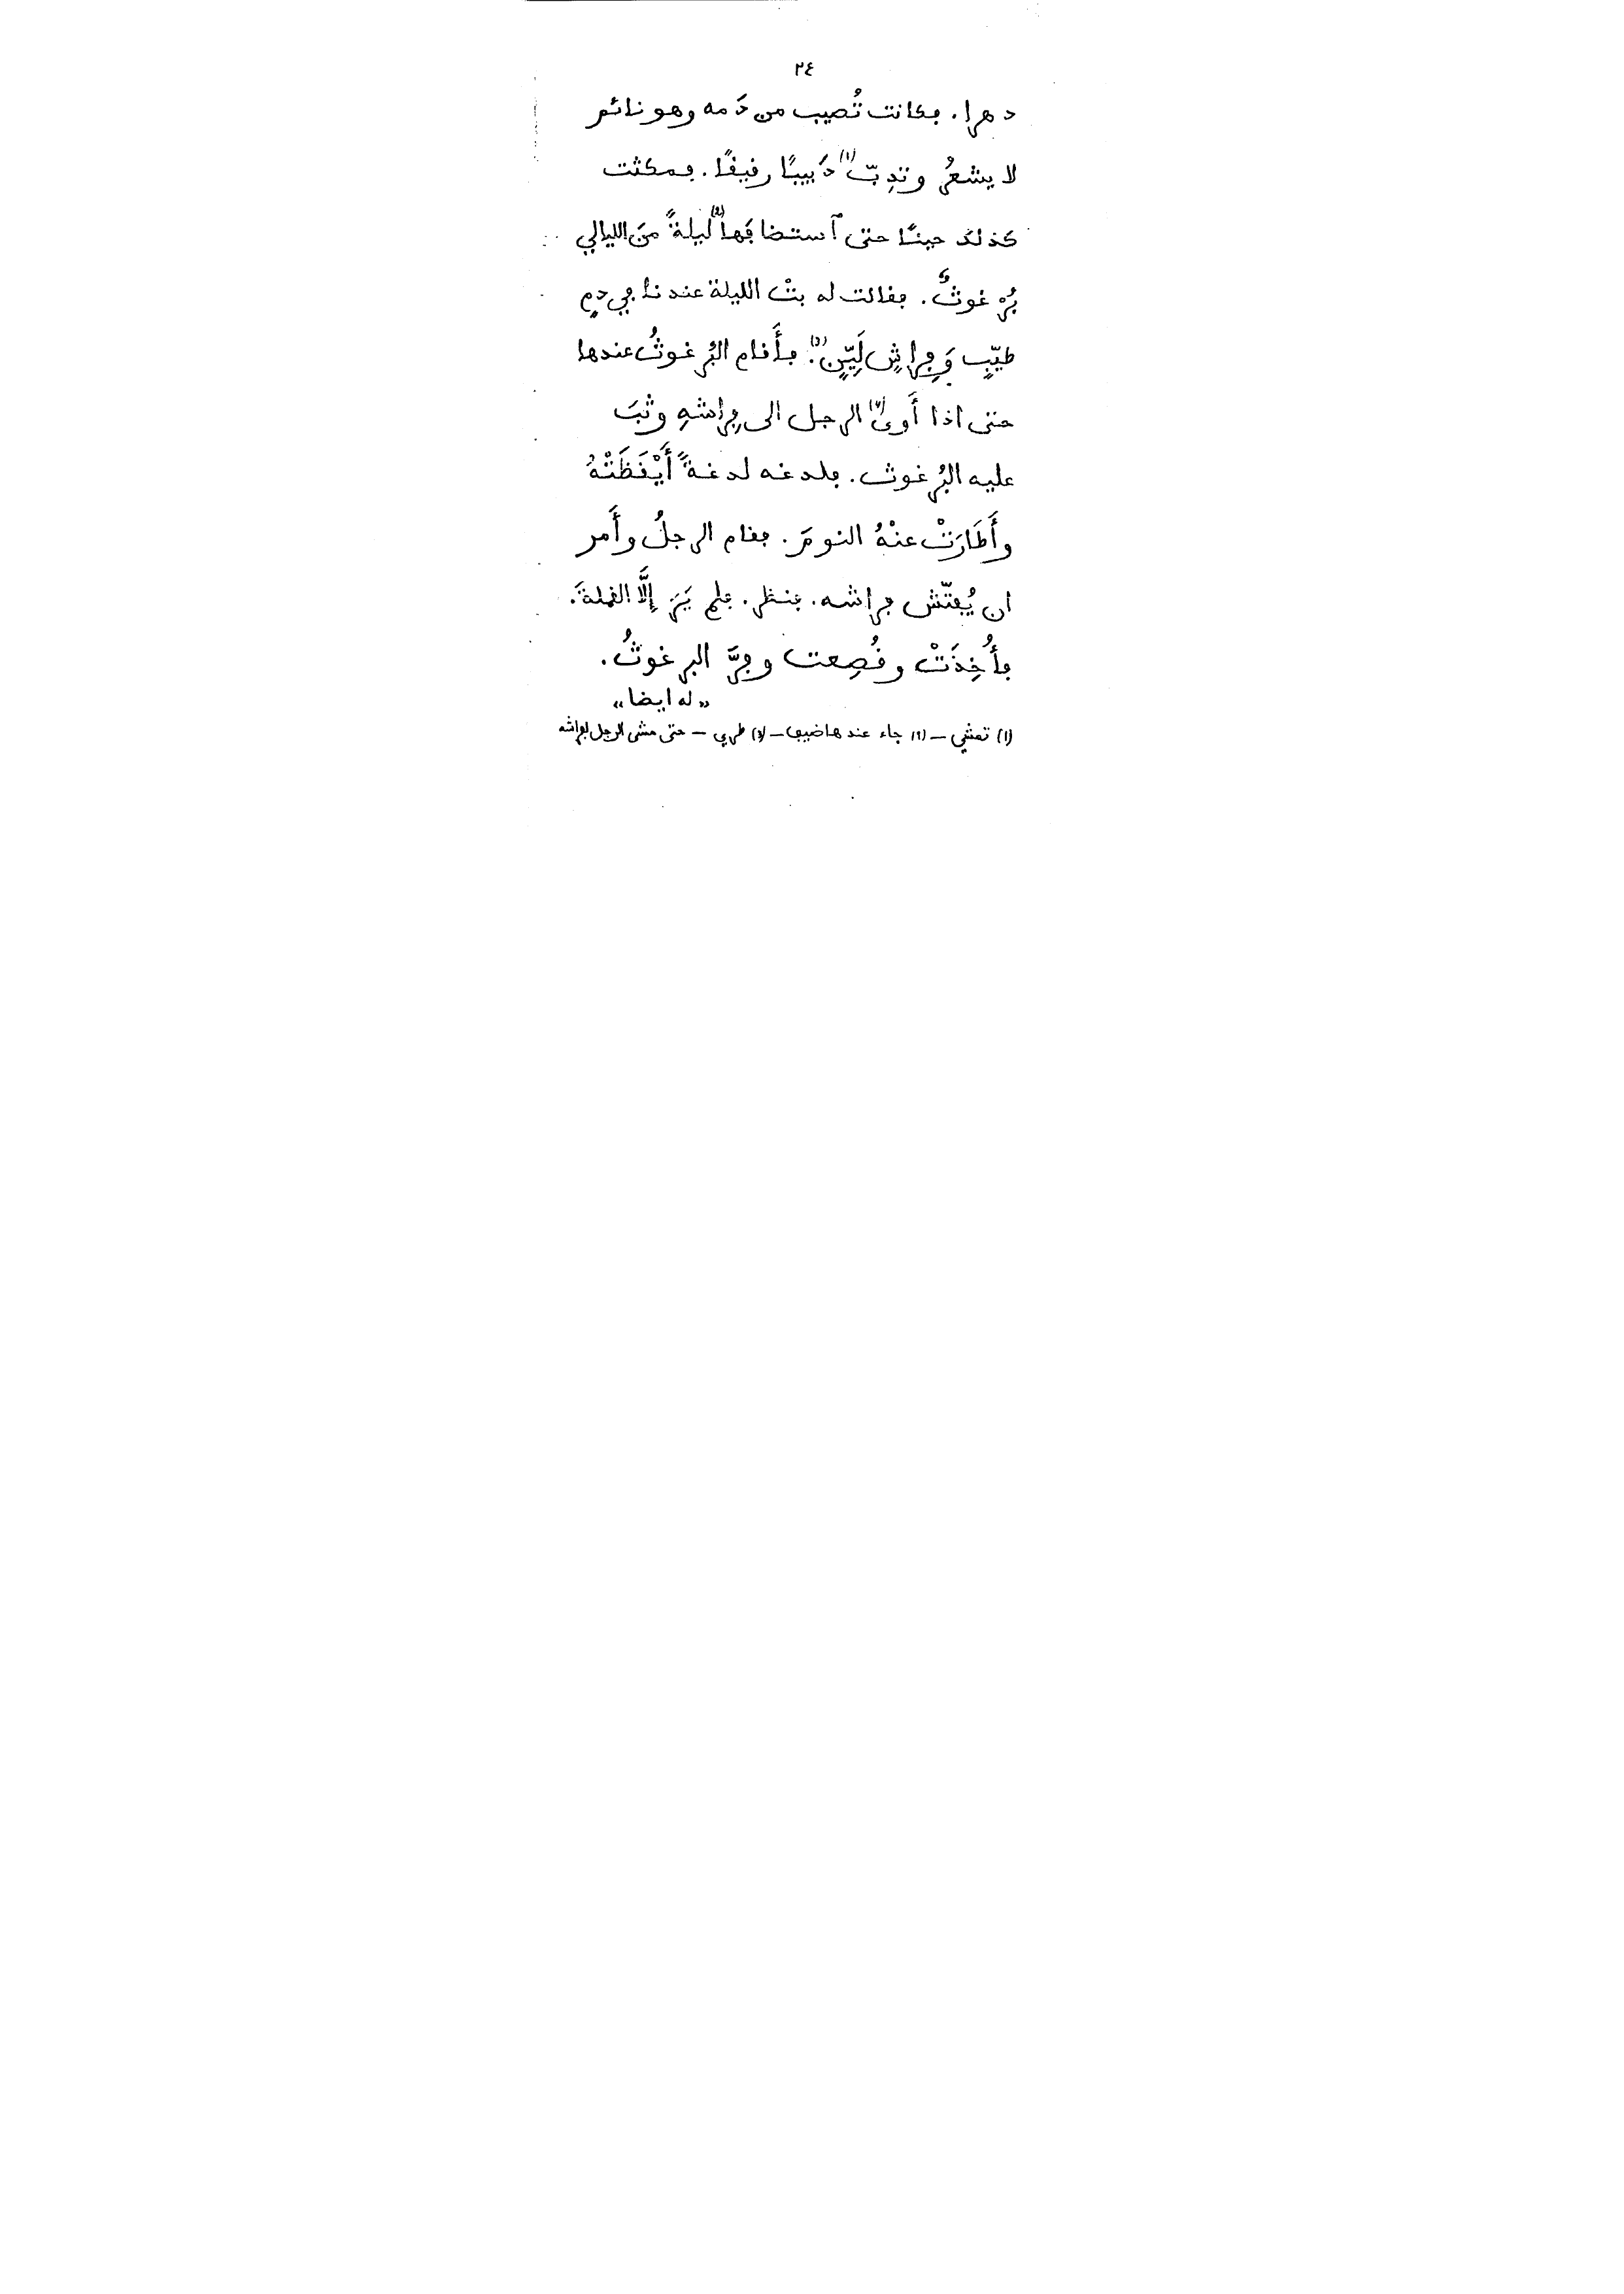 ٢٤
دهرا. فكانت تُصيب من دَمه وهو نائم
لا يشعرُ وتدِبّ (١) دَبيبًا رفيقًا. فمكثت
كذلك حينًا حتى ٱستضافَها (٢) ليلةً منَ الليالي
بُرْغوثٌ. فقالت له بتْ الليلة عندنا في دمٍ
طيّبٍ وَفِراشٍ لَيّنٍ (٣). فأَقام البُرغوثُ عندها
حتى اذا أَوىٰ (٤) الرجل الى فِراشهِ وثبَ
عليه البُرغوث. فلدغه لدغةً أَيْقَظَتْهُ
وأَطَارَتْ عنْهُ النومَ. فقام الرجلُ وأَمر
ان يُفتّش فراشه. فنظر. فلم يَرَ إِلَّا القملةَ.
فأُخِذَتْ وقُصِعت وفرَّ البرغوثُ.
„له ايضا„
(١) تمشي – (٢) جاء عندها ضيفا – (٣) طري – حتى مشى الرجل لفراشه